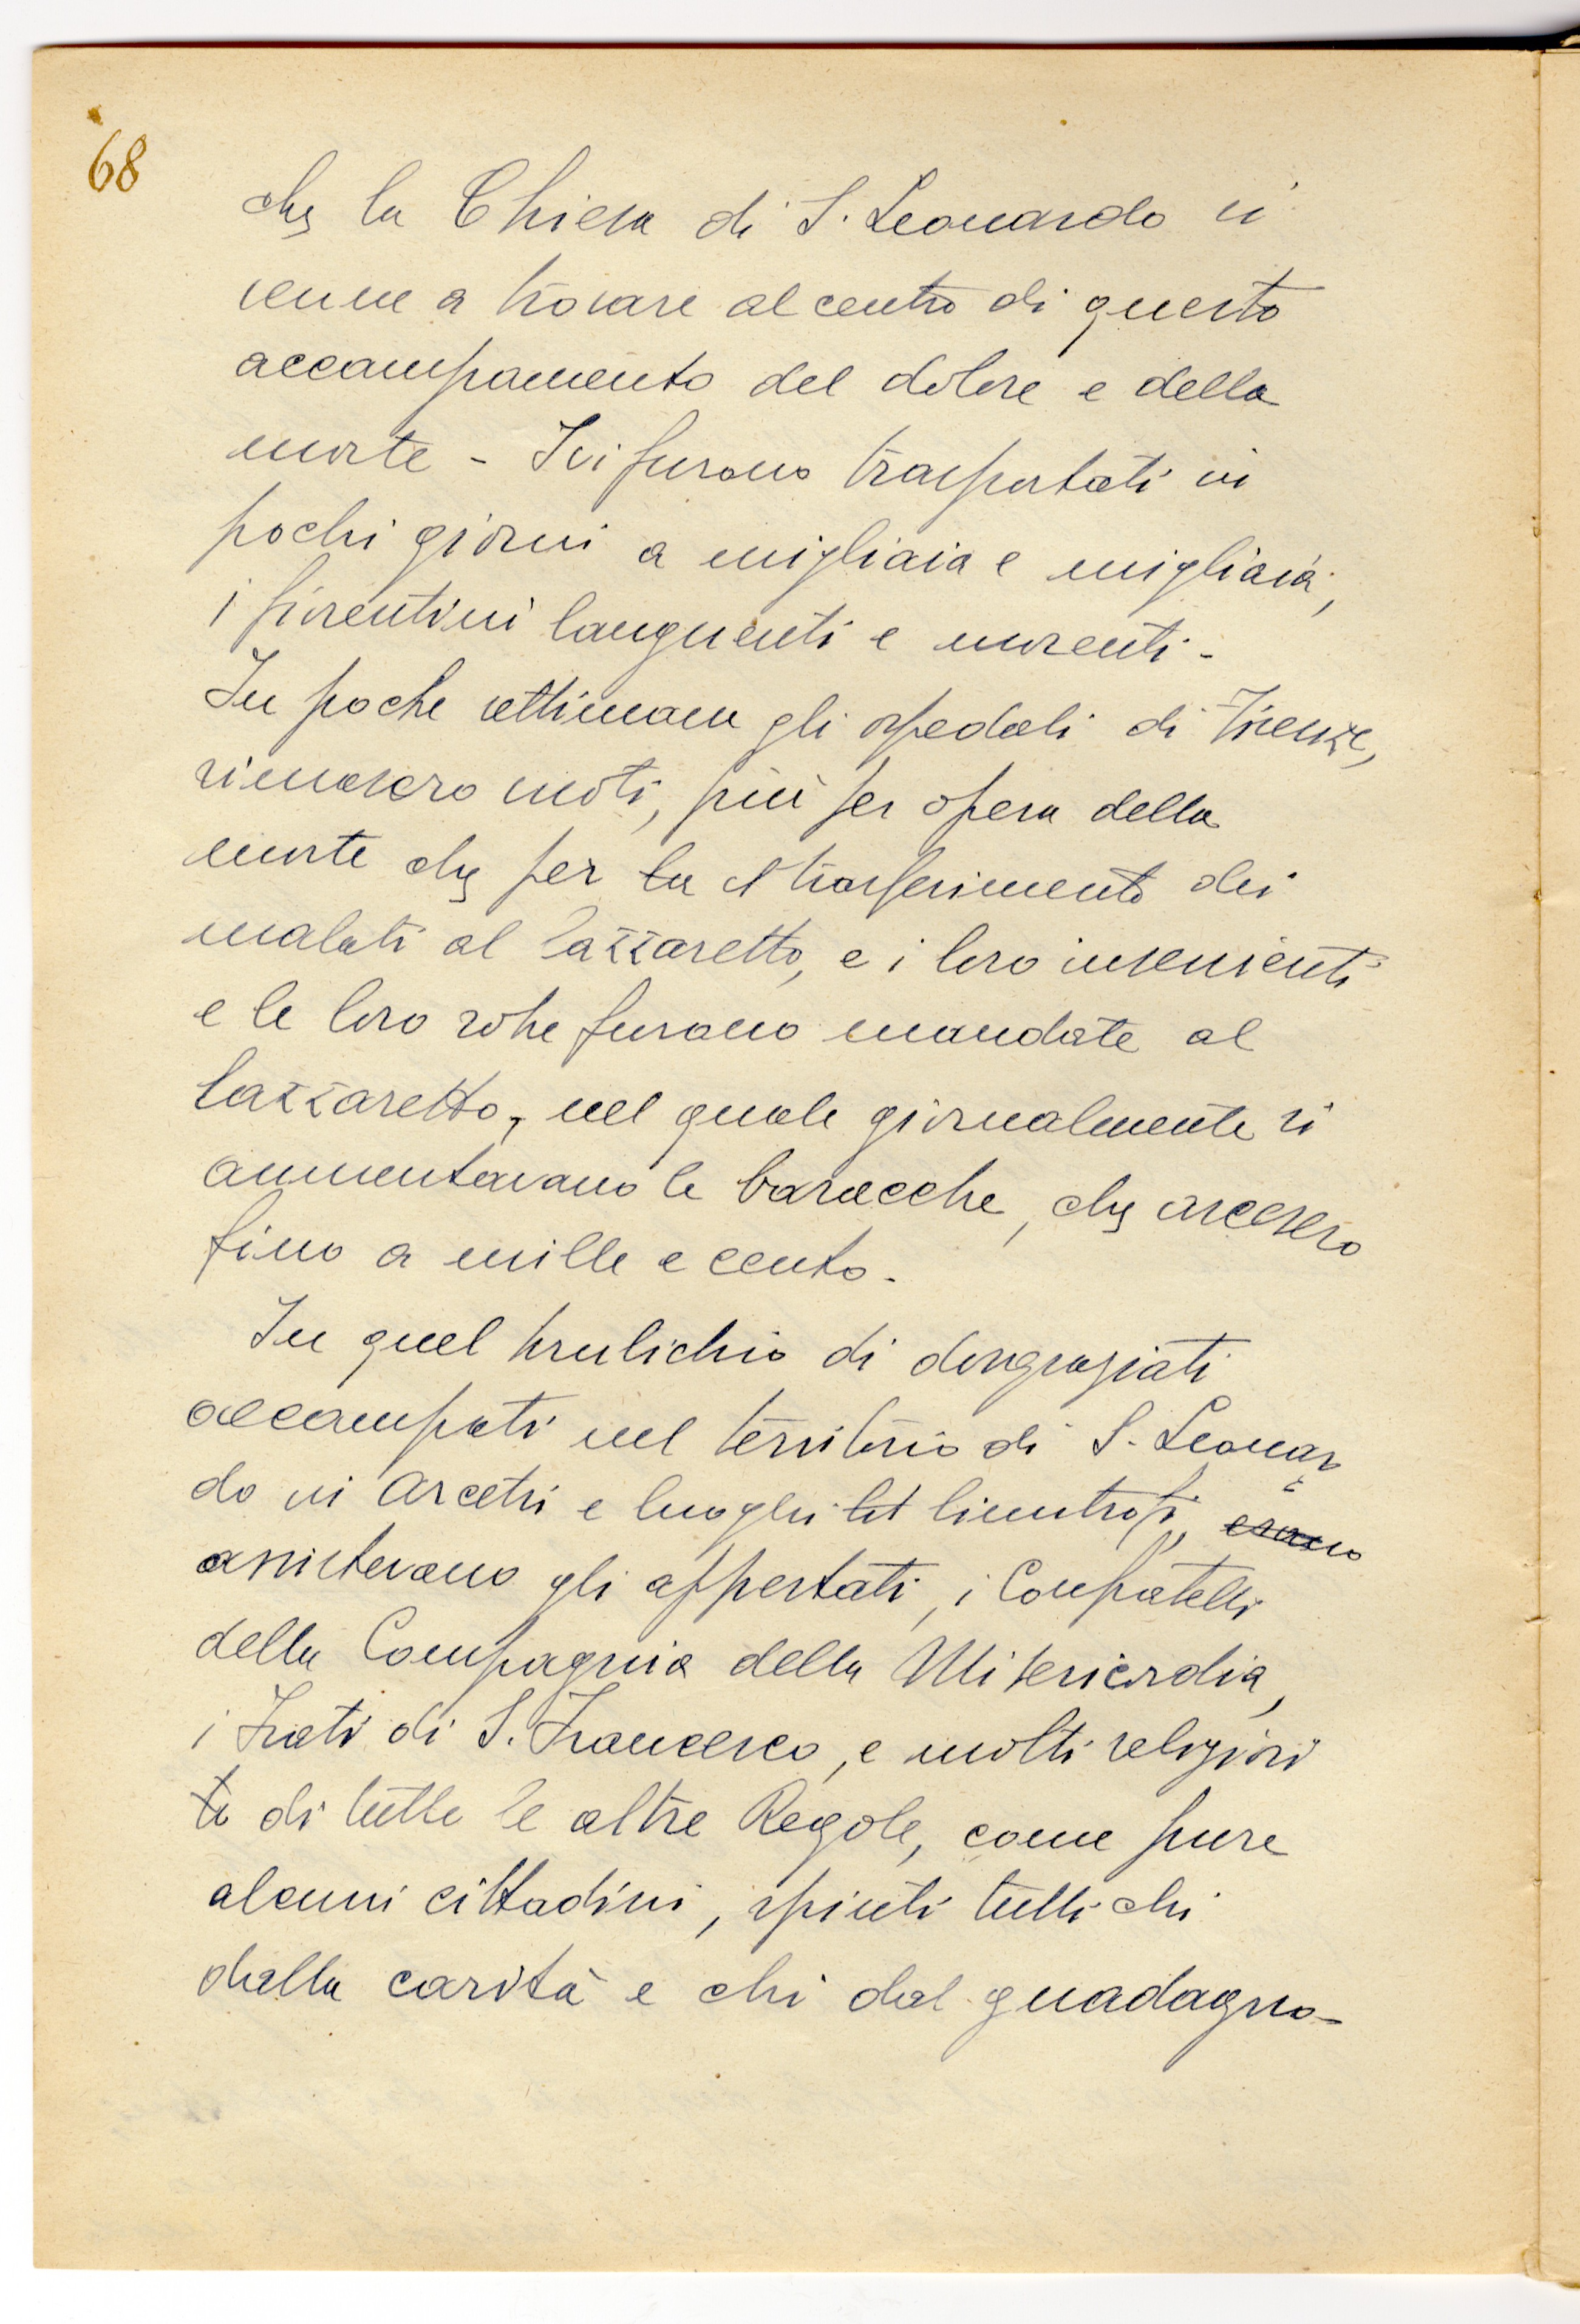 68
che la Chiesa di S. Leonardo si
venne a trovare al centro di questo
accampamento del dolore e della
morte - Ivi furono trasportati in
pochi giorni a migliaia e migliaia,
i fiorentini languenti e morenti -
In poche settimane gli ospedali di Firenze,
rimasero vuoti, più per opera della
morte che per la il trasferimento dei
malati al lazzaretto, e i loro inservienti
e le loro robe furono mandate al
lazzaretto, nel quale giornalmente si
aumentavano le baracche, che ascesero
fino a mille e cento -
In quel brulichio di disgraziati
accampati nel territorio di S. Leonar
do in Arcetri e luoghi limitrofi, erano
assistevano gli appestati, i Confratelli
della Compagnia della Misericordia,
i Frati di S. Francesco, e molti religiosi
di tutte le altre Regole, come pure
alcuni cittadini, spinti tutti chi
dalla carità e chi dal guadagno -